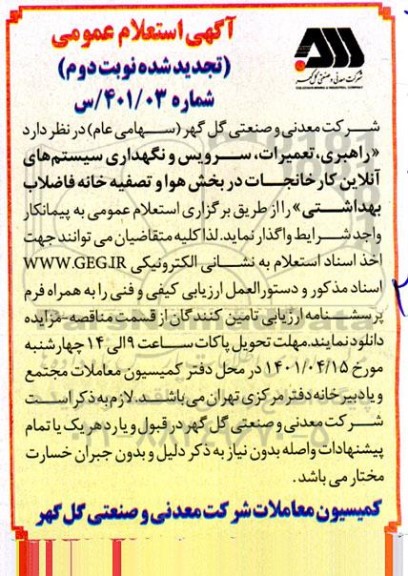 آگهی استعلام عمومی
(تجدید شده نوبت دوم)
شماره ۴۰۱/۰۳/س
شرکت معدنی و صنعتی گل گهر
GOLGOHAR MINING & INDUSTRIAL COMPANY
شرکت معدنی و صنعتی گل گهر (سهامی عام) در نظر دارد
«راهبری، تعمیرات، سرویس و نگهداری سیستم‌های
آنلاین کارخانجات در بخش هوا و تصفیه خانه فاضلاب
بهداشتی» را از طریق برگزاری استعلام عمومی به پیمانکار
واجد شرایط واگذار نماید. لذا کلیه متقاضیان می توانند جهت
اخذ اسناد استعلام به نشانی الکترونیکی WWW.GEG.IR
اسناد مذکور و دستورالعمل ارزیابی کیفی و فنی را به همراه فرم
پرسشنامه ارزیابی تامین کنندگان از قسمت مناقصه-مزایده
دانلود نمایند. مهلت تحویل پاکات ساعت ۹ الی ۱۴ چهارشنبه
مورخ ۱۴۰۱/۰۴/۱۵ در محل دفتر کمیسیون معاملات مجتمع
و یا دبیرخانه دفتر مرکزی تهران می باشد. لازم به ذکر است
شرکت معدنی و صنعتی گل گهر در قبول و یا رد هر یک یا تمام
پیشنهادات واصله بدون نیاز به ذکر دلیل و بدون جبران خسارت
مختار می باشد.
کمیسیون معاملات شرکت معدنی و صنعتی گل گهر